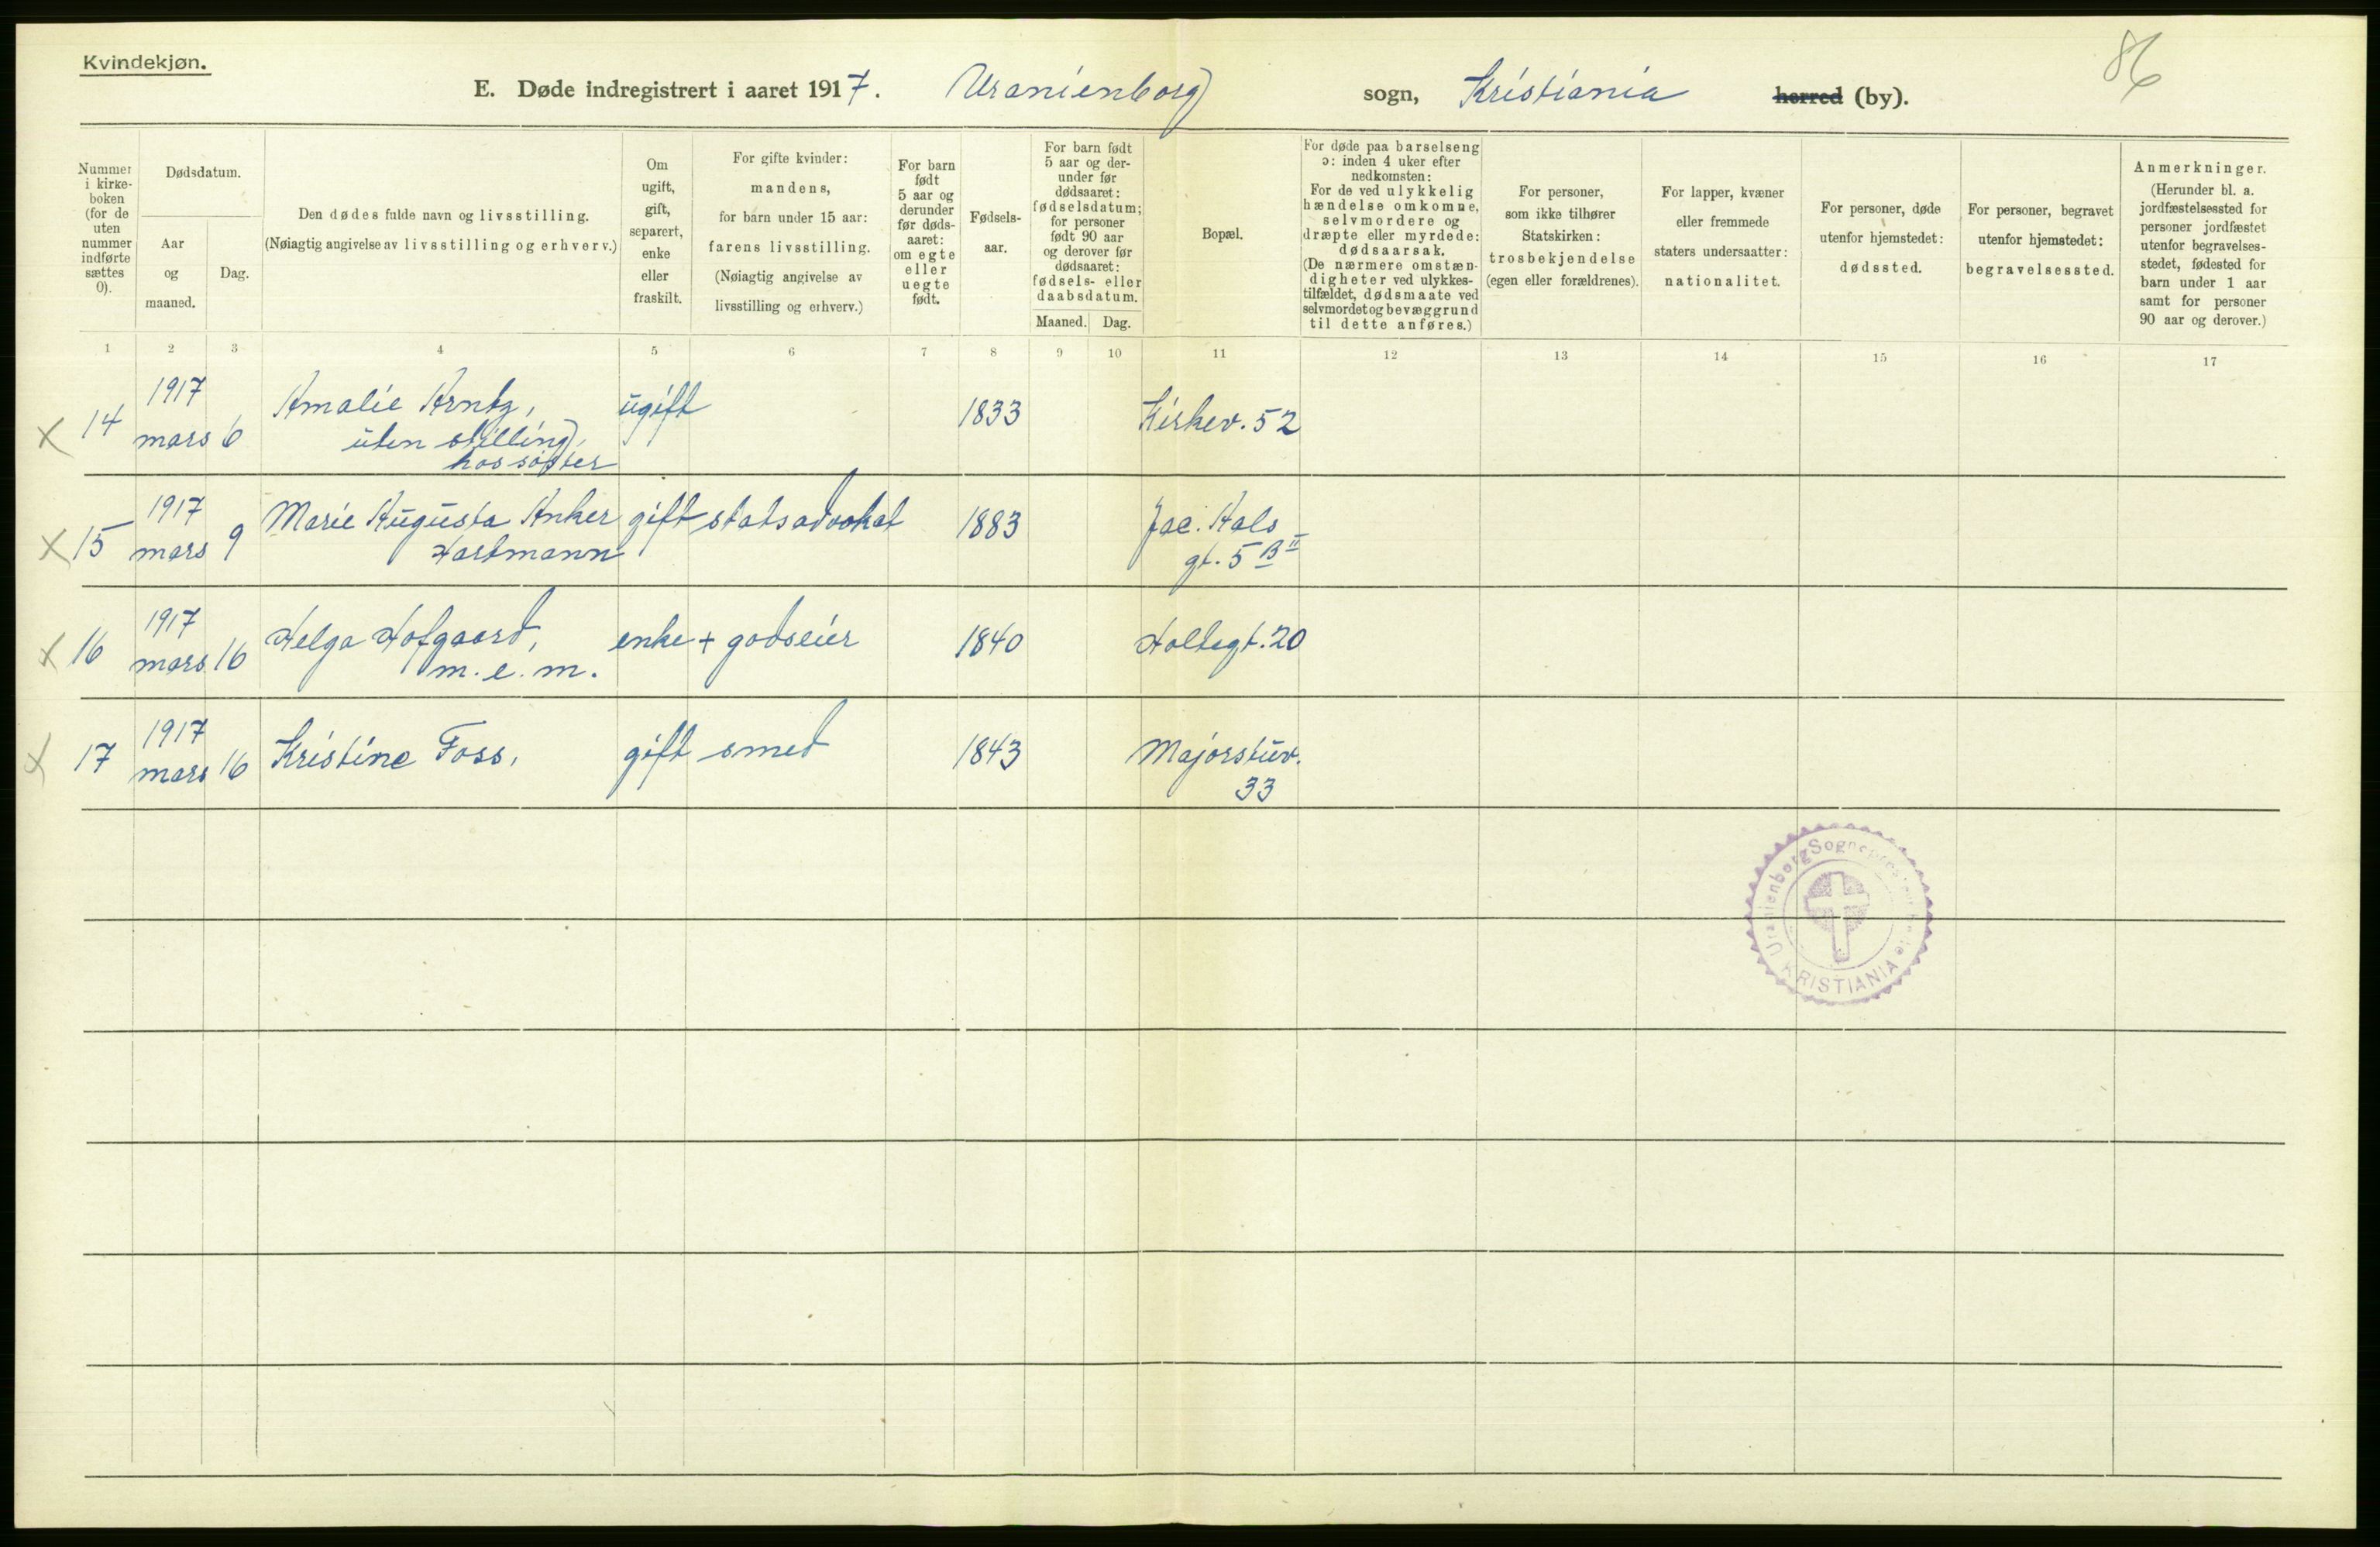 Kvindekjøn.
86
E. Døde indregistrert i aaret 1917. Uranienborg sogn, Kristiania herred (by).
Nummer i kirke-boken (for de uten nummer indførte sættes 0).
Dødsdatum.
Aar og maaned.
Dag.
Den dødes fulde navn og livsstilling.
(Nøiagtig angivelse av livsstilling og erhverv.)
Om ugift, gift, separert, enke eller fraskilt.
For gifte kvinder: mandens, for barn under 15 aar: farens livsstilling.
(Nøiagtig angivelse av livsstilling og erhverv.)
For barn født 5 aar og derunder før døds-aaret: om egte eller uegte født.
Fødsels-aar.
For barn født 5 aar og der-under før dødsaaret: fødselsdatum; for personer født 90 aar og derover før dødsaaret: fødsels- eller daabsdatum.
Maaned. Dag.
Bopæl.
For døde paa barselseng ɔ: inden 4 uker efter nedkomsten:
For de ved ulykkelig hændelse omkomne, selvmordere og dræpte eller myrdede: dødsaarsak.
(De nærmere omstæn-digheter ved ulykkes-tilfældet, dødsmaate ved selvmordet og bevæggrund til dette anføres.)
For personer, som ikke tilhører Statskirken: trosbekjendelse (egen eller forældrenes).
For lapper, kvæner eller fremmede staters undersaatter: nationalitet.
For personer, døde utenfor hjemstedet: dødssted.
For personer, begravet utenfor hjemstedet: begravelsessted.
Anmerkninger.
(Herunder bl. a. jordfæstelsessted for personer jordfæstet utenfor begravelses-stedet, fødested for barn under 1 aar samt for personer 90 aar og derover.)
1 2 3 4 5 6 7 8 9 10 11 12 13 14 15 16 17
x 14 1917 mars 6 Amalie Arntz, ugift 1833 Kirkev. 52
uten stilling,
hos søster
x 15 1917 mars 9 Marie Augusta Anker gift statsadvokat 1883 Jac. Aals
Hartmann gt. 5 B II
x 16 1917 mars 16 Helga Hofgaard, enke + godseier 1840 Holtegt. 20
m. e. m.
x 17 1917 mars 16 Kristine Foss, gift smed 1843 Majorstuv.
33
Uranienborg Sogneprestembede
KRISTIANIA